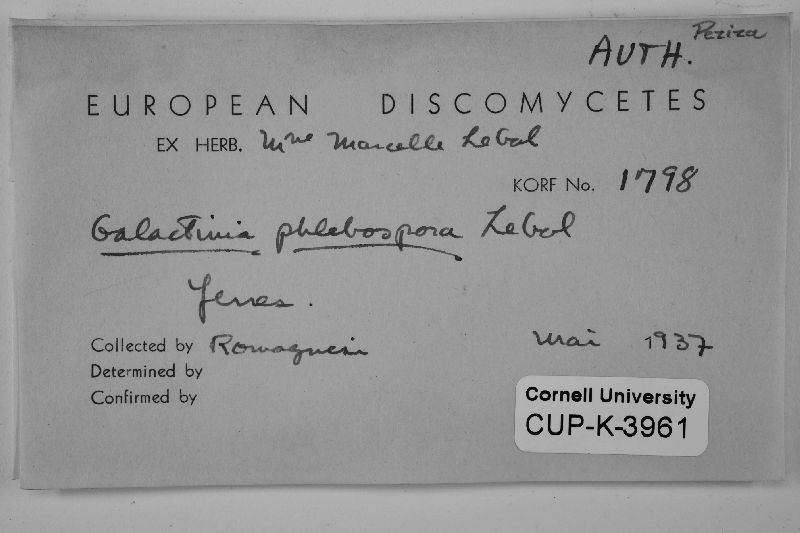 Peziza
AUTH.
EUROPEAN DISCOMYCETES
EX HERB. Mme Marcelle LeGal
KORF No. 1798
Galactinia phlebospora LeGal
Yerres.
Collected by Romagnesi Mai 1937
Determined by
Confirmed by
Cornell University
CUP-K-3961